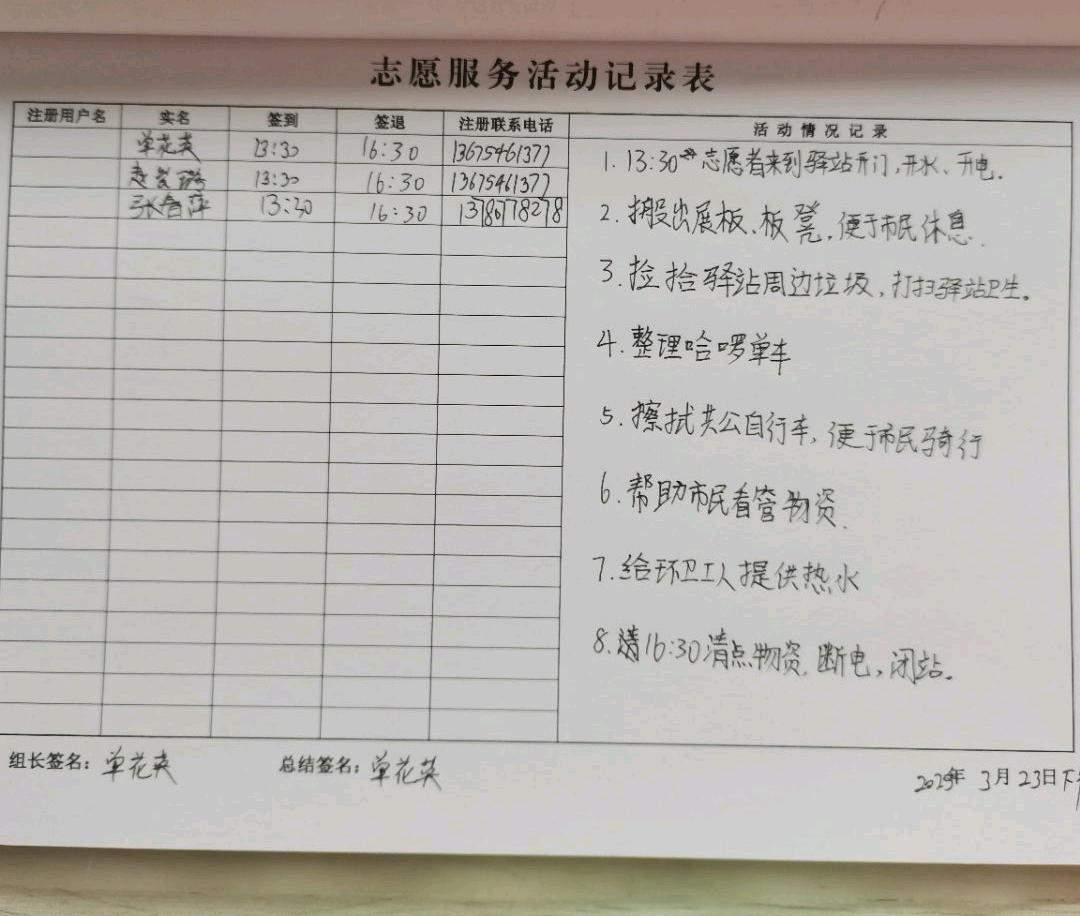 志愿服务活动记录表
注册用户名 实名 签到 签退 注册联系电话 活动情况记录
单花英 13:30 16:30 13675461377
13:30 16:30 13675461377
张 萍 13:30 16:30 13780778278
1. 13:30 志愿者来到驿站开门,开水、开电.
2. 搬出展板、板凳,便于市民休息.
3. 捡拾驿站周边垃圾,打扫驿站卫生。
4. 整理哈啰单车
5. 擦拭共公自行车,便于市民骑行
6. 帮助市民看管物资.
7. 给环卫工人提供热水
8. 16:30清点物资,断电,闭站。
组长签名:单花英 总结签名:单花英
年 3月23日下